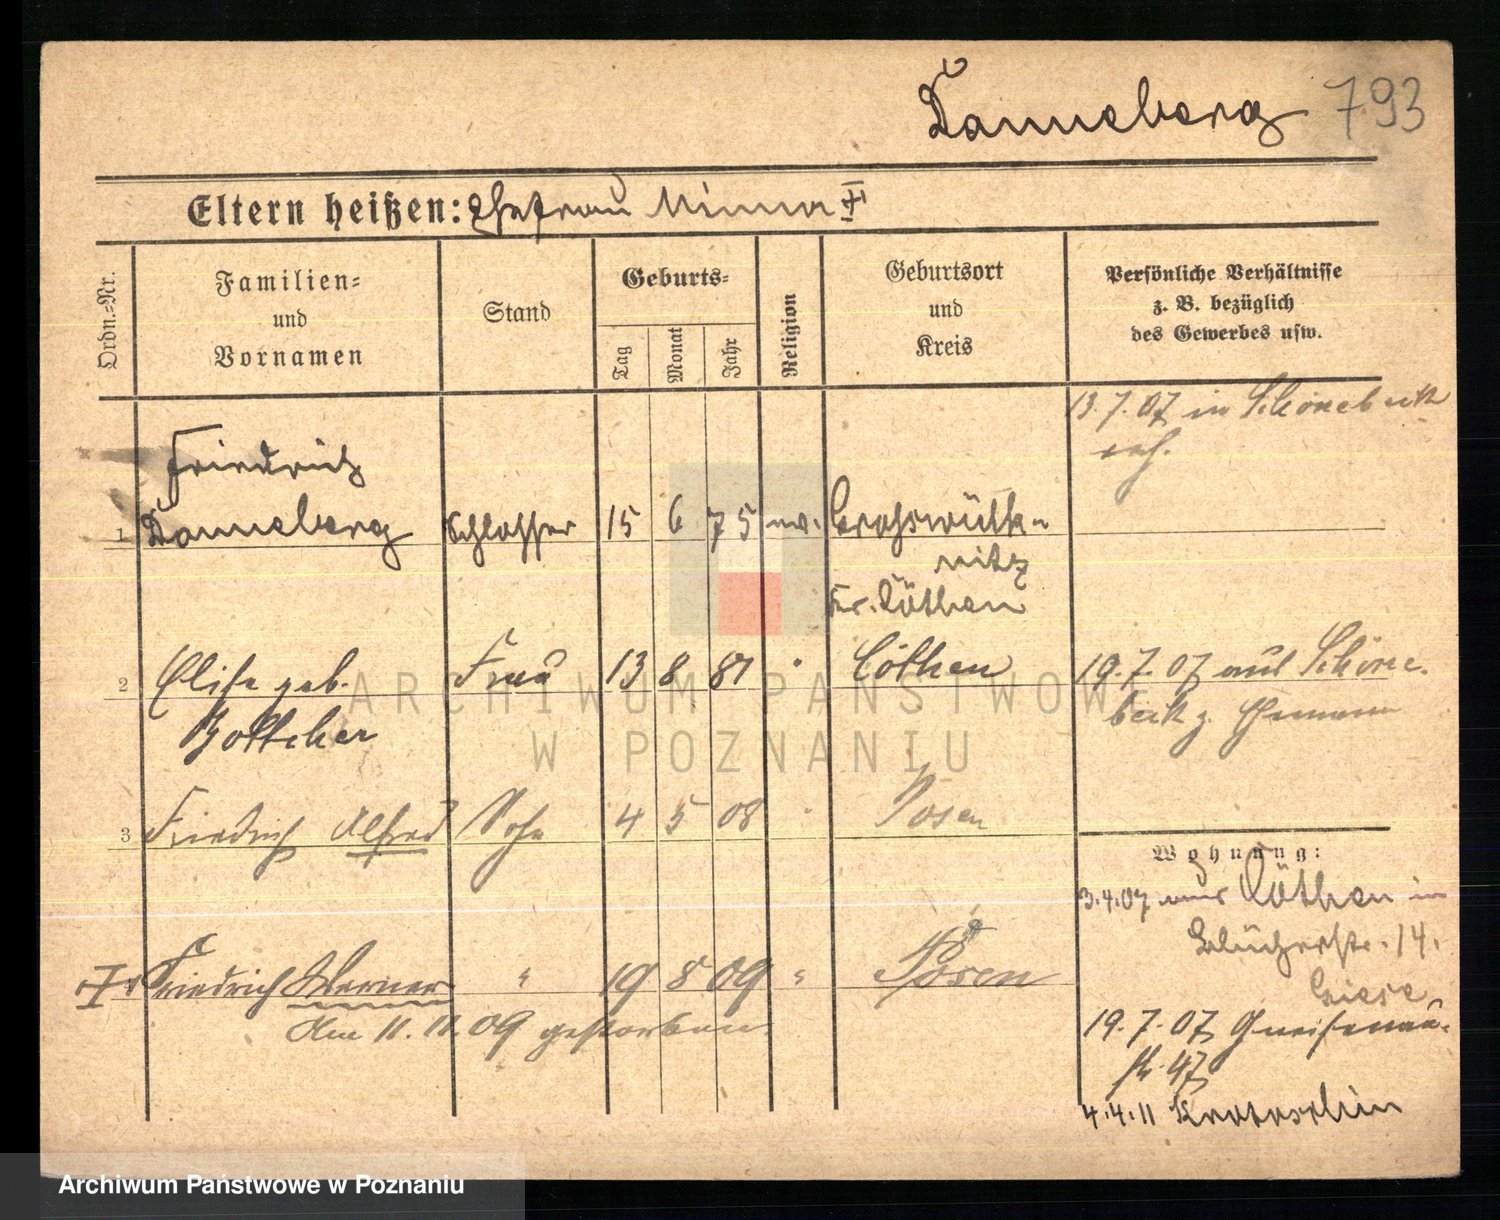 Danneberg 793
Eltern heißen: Ehefrau Minna
Ordn.-Nr.
Familien-
und
Vornamen
Stand
Geburts-
Tag
Monat
Jahr
Religion
Geburtsort
und
Kreis
Persönliche Verhältnisse
z. B. bezüglich
des Gewerbes usw.
13.7.07 in Schönebeck
Friedrich
1 Danneberg Schlosser 15 6 75 ev. Grosswülk-
nitz
Kr. Cöthen
2 Elise geb. Frau 13 8 81 " Cöthen 19.7.07 aus Schöne-
Bottcher beck z. Ehemann
3 Friedrich Alfred Sohn 4 5 08 " Posen
Wohnung:
3.4.07 aus Cöthen in
Blücherstr. 14.
Friedrich Werner " 19 8 09 " Posen
Giese
Am 11.11.09 gestorben
19.7.07 Gneisenau-
str. 47
4.4.11 Krotoschin
ARCHIWUM PAŃSTWOWE
W POZNANIU
Archiwum Państwowe w Poznaniu